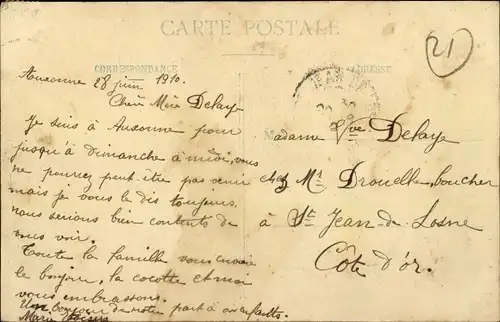 CARTE POSTALE
CORRESPONDANCE
ADRESSE
21
Auxonne 28 juin 1910.
Chère Mère Delaye
Je suis à Auxonne pour
jusqu'à dimanche à midi, vous
ne pourrez peut-être pas venir
mais je vous le dis toujours
nous serions bien contents de
vous voir.
Toute la famille vous envoie
le bonjour, la cocotte et moi
vous embrassons.
Un bonjour de notre part à vos enfants.
Marie
Madame Vve Delaye
chez Mr Drouelle, boucher
à St Jean-de-Losne
Côte d'or.